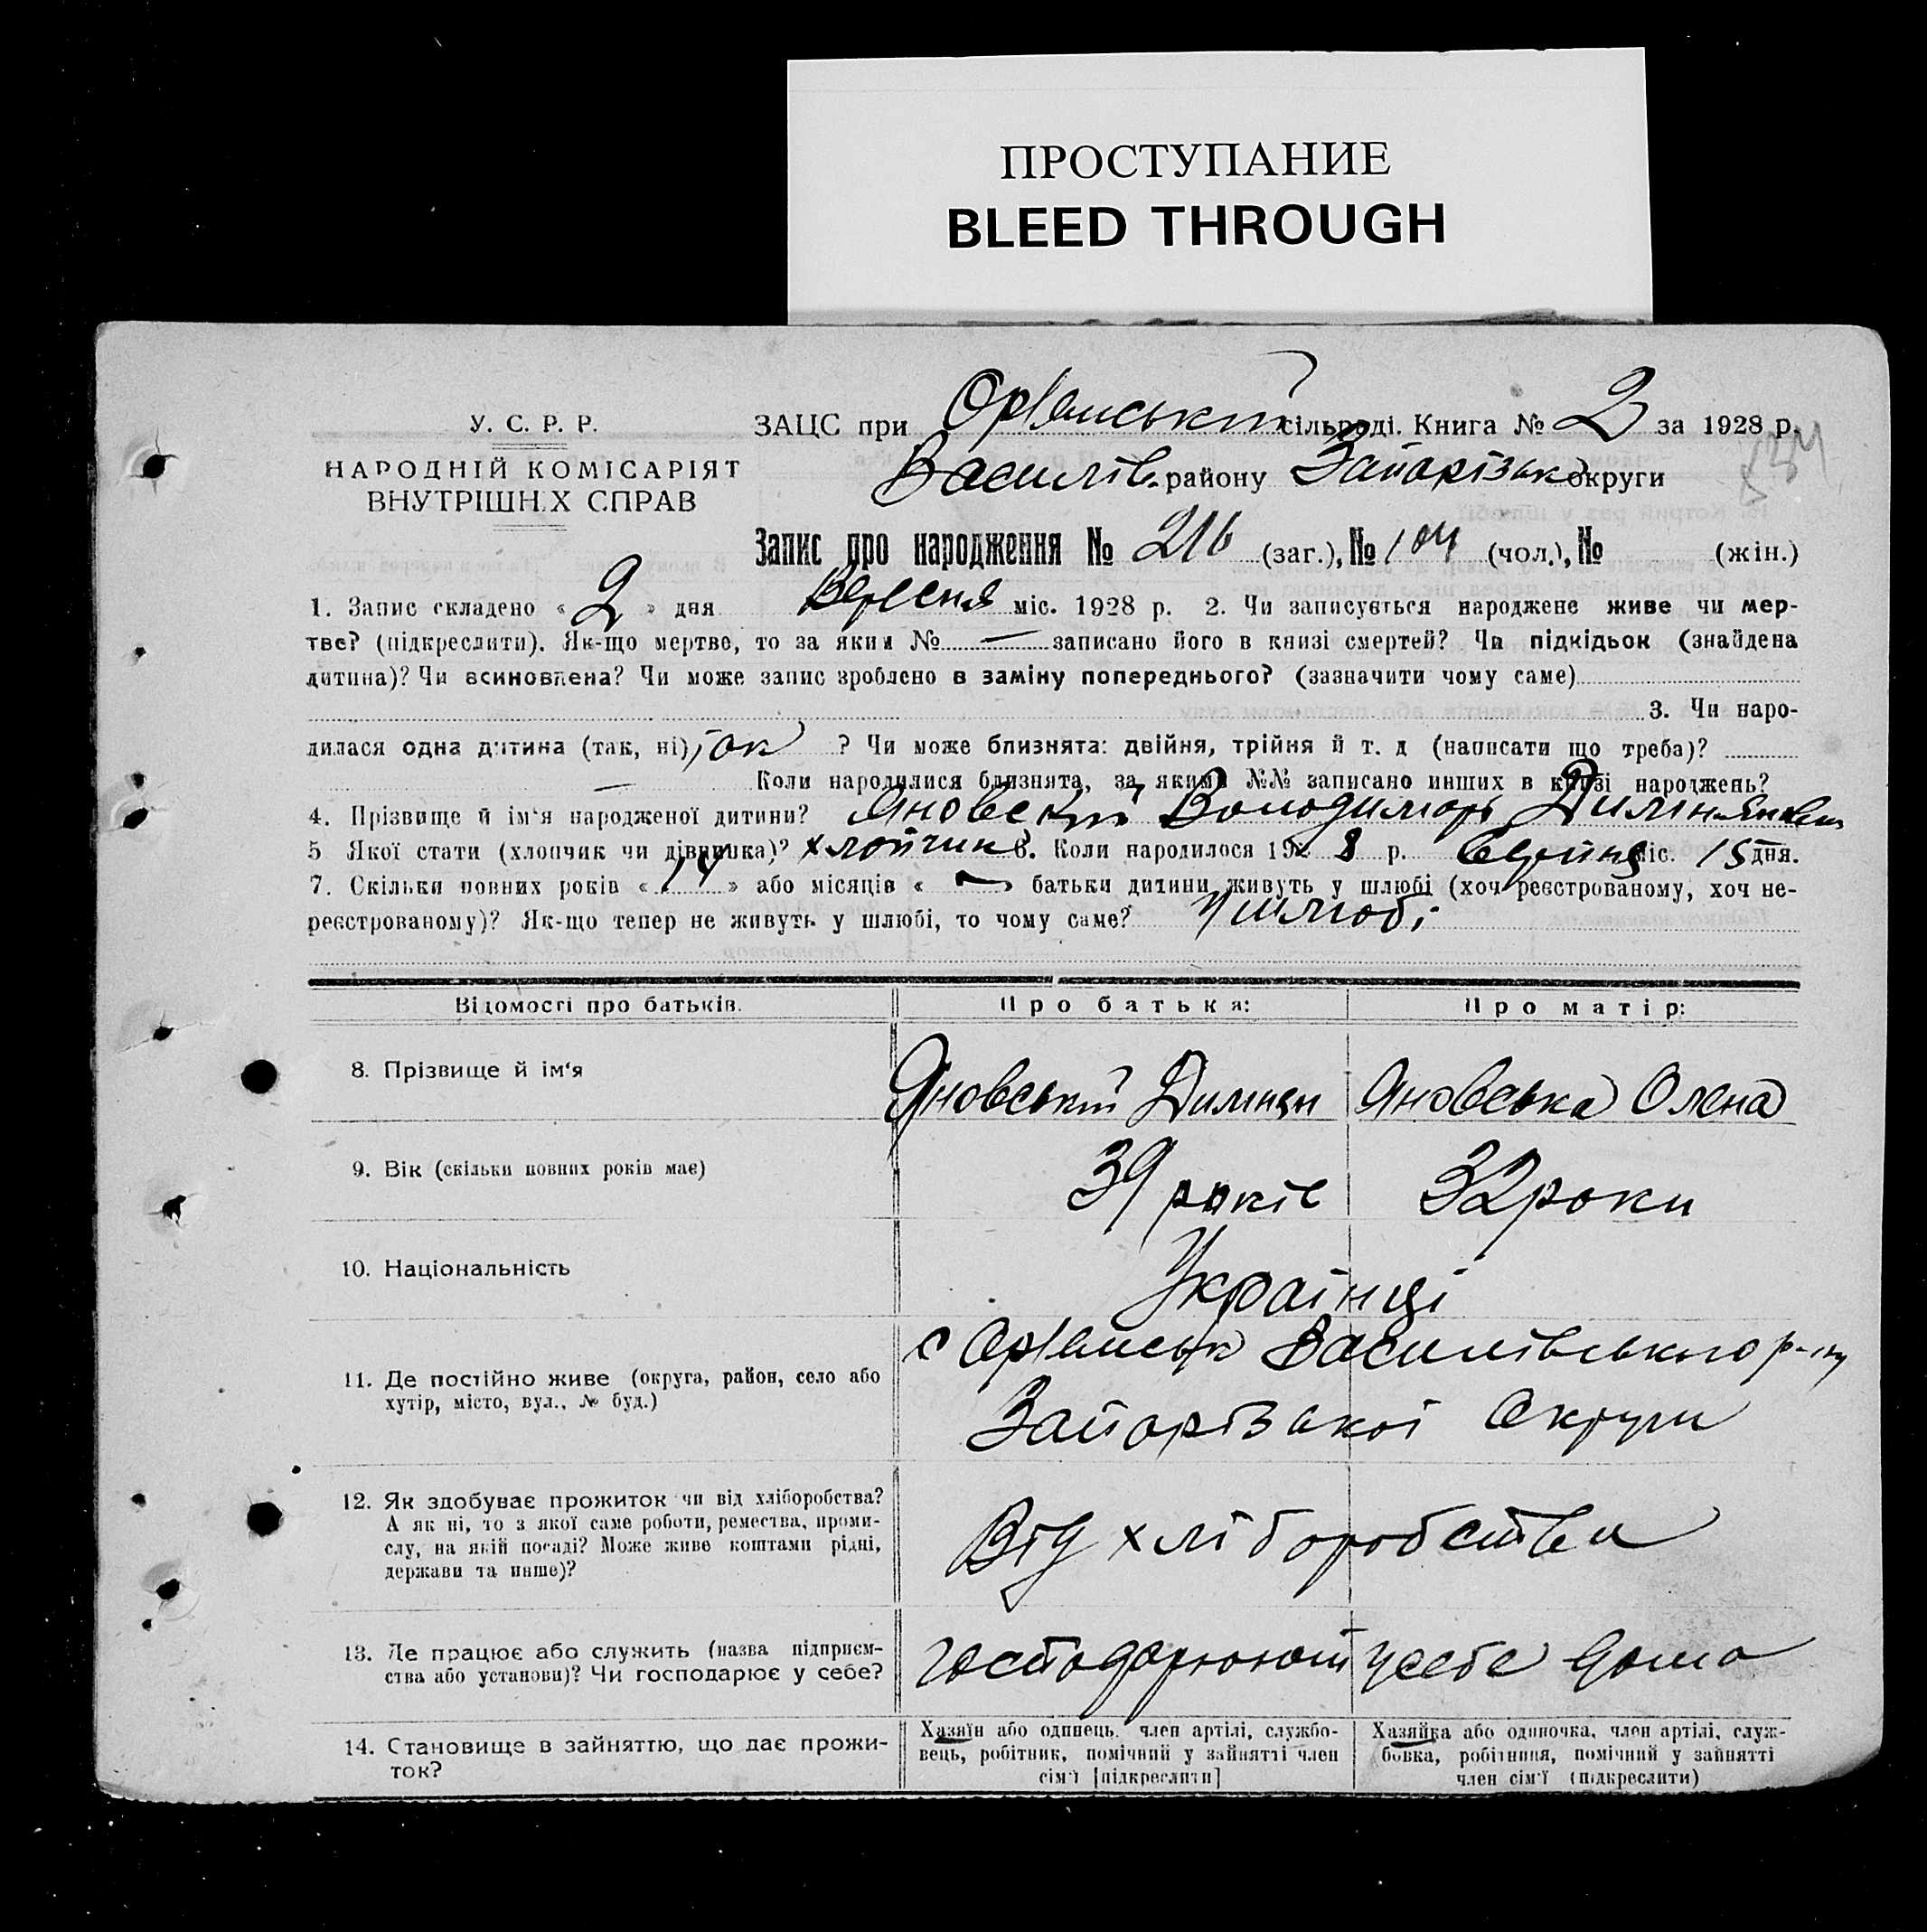 ПРОСТУПАНИЕ
BLEED THROUGH
У. С. Р. Р.
НАРОДНІЙ КОМІСАРІЯТ
ВНУТРІШНІХ СПРАВ
ЗАЦС при Оріянській сільраді. Книга № 2 за 1928 р.
Василів. району Запорізьк округи
Запис про народження № 216 (заг.), № 104 (чол.), № (жін.)
1. Запис складено « 2 » дня Вересня міс. 1928 р. 2. Чи записується народжене живе чи мер-
тве? (підкреслити). Як-що мертве, то за яким № — записано його в книзі смертей? Чи підкідьок (знайдена
дитина)? Чи всиновлена? Чи може запис зроблено в заміну попереднього? (зазначити чому саме)
3. Чи наро-
дилася одна дитина (так, ні) так ? Чи може близнята: двійня, трійня й т. д (написати що треба)?
— Коли народилися близнята, за якими №№ записано инших в книзі народжень?
4. Прізвище й ім'я народженої дитини? Яновський Володимирь
5 Якої стати (хлопчик чи дівчинка)? хлопчик 6. Коли народилося 192 8 р. серпня міс. 15 дня.
7. Скільки повних років « 14 » або місяців « — » батьки дитини живуть у шлюбі (хоч реєстрованому, хоч не-
реєстрованому)? Як-що тепер не живуть у шлюбі, то чому саме? у шлюбі
Відомості про батьків. Про батька: Про матір:
8. Прізвище й ім'я Яновській Димяян Яновська Олена
9. Вік (скільки повних років має) 39 років 32 роки
10. Національність Українці
11. Де постійно живе (округа, район, село або
хутір, місто, вул., № буд.)
с Василівського р-ну
Запорізької Округи
12. Як здобуває прожиток чи від хліборобства?
А як ні, то з якої саме роботи, ремества, проми-
слу, на якій посаді? Може живе коштами рідні,
держави та инше)?
Від хліборобства
13. Де працює або служить (назва підприєм-
ства або установи)? Чи господарює у себе?
господарюють у себе дома
14. Становище в зайняттю, що дає прожи-
ток?
Хазяїн або одинець, член артілі, службо-
вець, робітник, помічний у зайнятті член
сім'ї [підкреслити]
Хазяйка або одиночка, член артілі, служ-
бовка, робітниця, помічний у зайнятті
член сім'ї (підкреслити)